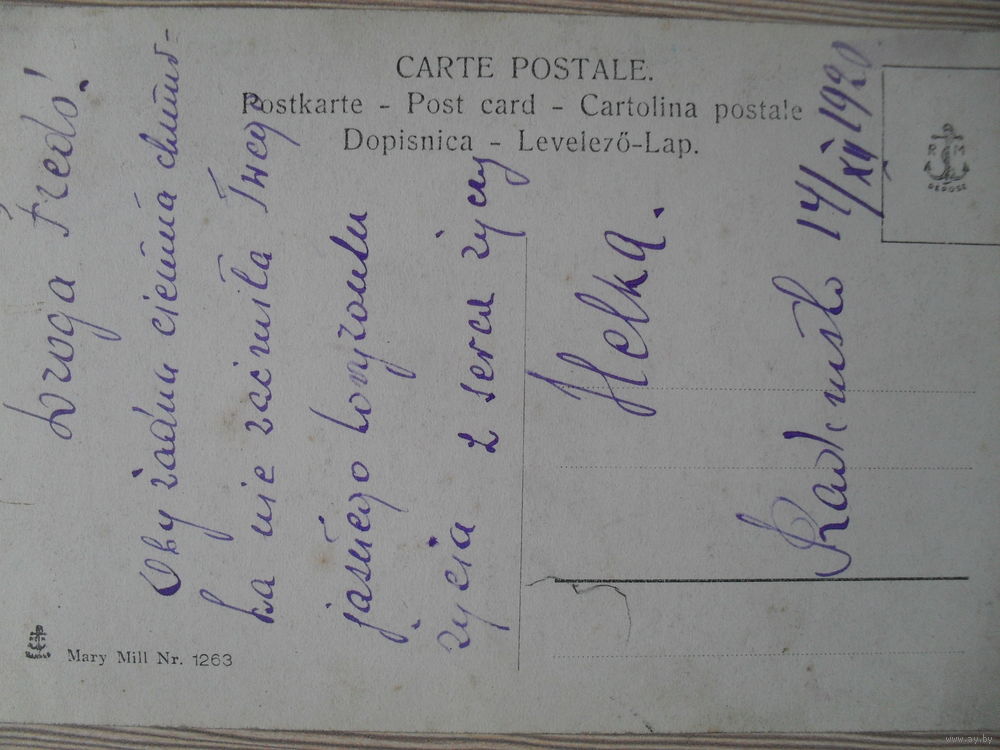 CARTE POSTALE.
Postkarte - Post card - Cartolina postale
Dopisnica - Levelező-Lap.
R M
Droga Fredo!
Oby żadna ciemna chmur-
ka nie zaćmiła Twego
jasnego horyzontu
życia z serca życzy
Helka.
Radomsko 14/XII 1920
Mary Mill Nr. 1263
www.ay.by